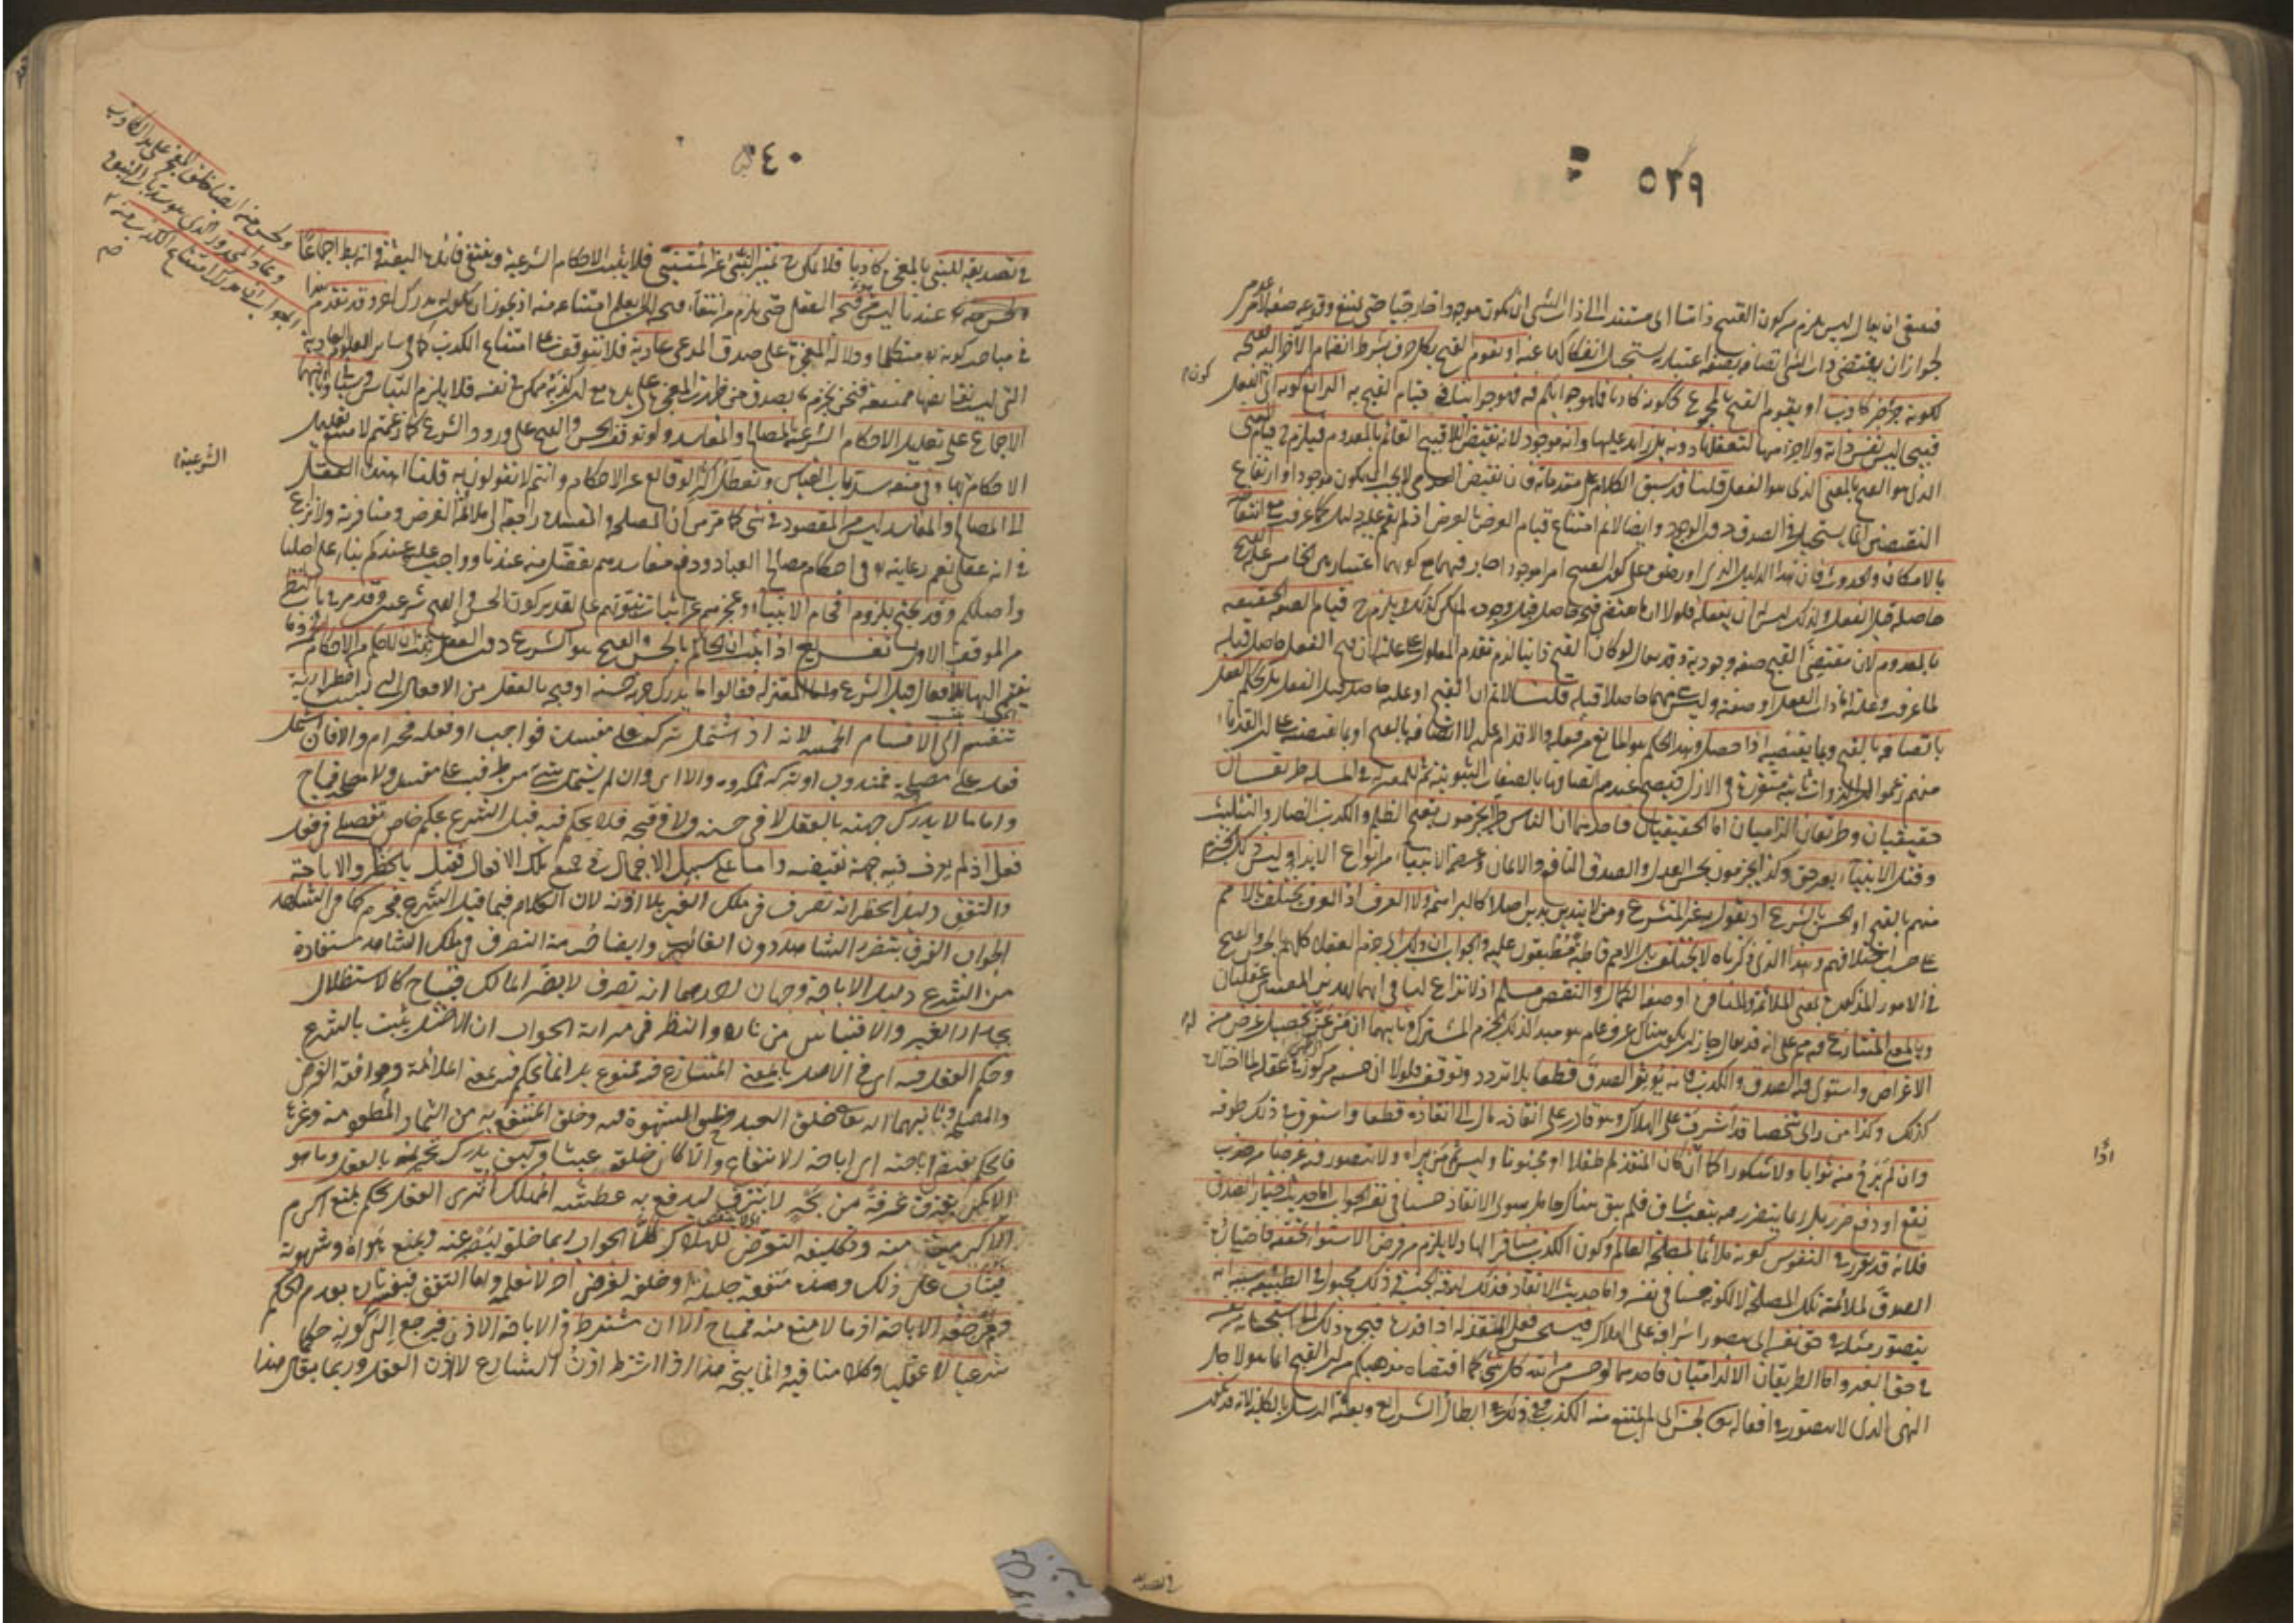 ٥٣٩
فينبغي ان يقال ليس يلزم من كون القبح ذاتيا اي مستندا الى ذات الشي ان يكون موجودا خارجيا حتى يمتنع وقوعه صفة لامر عدمي
لجواز ان يقتضي ذات الشي اتصافه بصفة اعتبارية يستحيل انفكاكها عنه او يقوم القبح بكل حرف بشرط انضمام الاخر اليه فقبحه
لكونه جزء خبر كاذب او يقوم القبح بالمجموع ككونه كاذبا فما هو جوابكم فيه فهو جوابنا في قيام القبح به الرابع كونه اي الفعل
كون
قبيحا ليس نفس ذاته ولا جزء منها لتعقلها دونه بل زايد عليها وانه موجود لانه نقيض اللاقبيح القائم بالمعدوم فيلزم قيام المعنى
الذي هو القبح بالمعنى الذي هو الفعل قلنا قد سبق الكلام على مقدماته فان نقيض العدمي لا يجب ان يكون موجودا وارتفاع
النقيضين انما يستحيل في الصدق دون الوجود وايضا لا نم امتناع قيام العرض بالعرض اذ لم يقم عليه دليل كما عرفت مع انتقاضه
بالامكان والحدوث فان هذا الدليل الذي اوردتموه على كون القبح امرا موجودا جار فيهما مع كونهما اعتباريين الخامس علة القبح
حاصلة قبل الفعل ولذلك ليس له ان يفعله فلولا ان ما يقتضي قبحه حاصل قبل وجوده لم يكن كذلك ويلزم ح قيام الصفة الحقيقية
بالمعدوم لان مقتضي القبيح صفة وجودية وقد يقال لو كان القبح ذاتيا لزم تقدم المعلول على علته لان قبح الفعل حاصل قبله
لما عرفت وعلته اما ذات الفعل او صفته وليس شي منهما حاصلا قبله قلنا لا نم ان القبح او علته حاصل قبل الفعل بل يحكم العقل
باتصافه بالقبح وبما يقتضيه اذا حصل وهذا الحكم هو المانع من فعله والاقدام عليه لا اتصافه بالقبح او بما يقتضيه على ان القدماء
منهم زعموا ان الذوات ثابتة متقررة في الازل فيصح عندهم اتصافها بالصفات الثبوتية ثم للمعتزلة في المسئلة طريقان
حقيقيان وطريقان الزاميان اما الحقيقيان فاحديهما ان الناس طرا يجزمون بقبح الظلم والكذب الضار والتثليث
وقتل الانبياء بغير حق وكذا يجزمون بحسن العدل والصدق النافع والايمان وعصمة الانبياء من انواع الايذاء وليس ذلك الجزم
منهم بالقبح او الحسن بالشرع اذ يقول به غير المتشرع ومن لا يتدين بدين اصلا كالبراهمة ولا العرف اذ العرف يختلف بالامم
على حسب اختلافهم وهذا الذي ذكرناه لا يختلف بل الامم قاطبة مطبقون عليه والجواب ان ذلك اي جزم العقلاء كلهم بالحسن والقبح
في الامور المذكورة بمعنى الملائمة والمنافرة او صفة الكمال والنقص مسلم اذ لا نزاع لنا في انهما بهذين المعنيين عقليان
وبالمعنى المتنازع فيه مم على انه قد يقال جاز ان يكون هناك عرف عام هو مبدأ لذلك الجزم المشترك وثانيهما ان من عن له تحصيل غرض من
الاغراض واستوى فيه الصدق والكذب فانه يؤثر الصدق قطعا بلا تردد وتوقف فلولا ان حسنه مركوز في عقله لما اختاره
كذلك وكذا من راى شخصا قد اشرف على الهلاك وهو قادر على انقاذه مال الى انقاذه قطعا واستغرق في ذلك طوقه
وان لم يرج منه ثوابا ولا شكورا كما اذا كان المنقذ طفلا او مجنونا وليس ثم من يراه ولا يتصور فيه غرضا من جذب
اذا
نفع او دفع ضرر بل ربما يتضرر فيه بتعب شاق فلم يبق هناك حامل سوى الانقاذ حسنا في نفسه الجواب اما حديث اختيار الصدق
فلانه قد تقرر في النفوس كونه ملائما لمصلحة العالم وكون الكذب منافرا لها ولا يلزم من فرض الاستواء تحققه فاختياره
الصدق لملائمته تلك المصلحة لا لكونه حسنا في نفسه واما حديث الانقاذ فذلك لرقة الجنسية وذلك مجبول في الطبيعة سببه انه
يتصور مثله في حق نفسه اي يتصور اشرافه على الهلاك فيستحسن فعل المنقذ له اذا قدره فيجره ذلك الى استحسانه من نفسه
في حق الغير واما الطريقان الالزاميان فاحديهما لو حسن من الله كل شي كما اقتضاه مذهبكم من ان القبح انما هو لاجل
النهي الذي لا يتصور في افعاله تع لحسن اي لم يمتنع منه الكذب وفي ذلك ابطال الشرايع وبعثة الرسل بالكلية لانه قد يكون
في تصديقه
٥٤٠
في تصديقه للنبي بالمعجزة كاذبا فلا يمكن ح تمييز النبي عن المتنبي فلا يثبت الاحكام الشرعية وينتفي فائدة البعثة وانه بط اجماعا
ولحسن منه ايضا خلق المعجز على يد الكاذب
وعاد المحذور الذي هو سد باب النبوة
الجواب ان مدرك امتناع الكذب منه تع
عندنا ليس هو قبحه العقلي حتى يلزم من انتفاء قبحه ان لا يعلم امتناعه منه اذ يجوز ان يكون له مدرك اخر وقد تقدم هذا
في مباحث كونه تع متكلما ودلالة المعجزة على صدق المدعي عادية فلا تتوقف على امتناع الكذب كما في ساير العلوم العادية
التي ليست نقايضها ممتنعة فنحن نجزم بصدق من ظهرت المعجزة على يده مع ان كذبه ممكن في نفسه فلا يلزم التباس وثانيهما
الاجماع على تعليل الاحكام الشرعية بالمصالح والمفاسد ولو توقف الحسن والقبح على ورود الشرع كما زعمتم لامتنع تعليل
الشرعية
الاحكام بها وفي منعه سد باب القياس وتعطل اكثر الوقايع عن الاحكام وانتم لا تقولون به قلنا اهتداء العقل
الى المصالح والمفاسد ليس من المقصود في شي كما مر من ان المصلحة والمفسدة راجعة الى ملائمة الغرض ومنافرته ولا نزاع
في انه عقلي نعم رعايته تع في احكامه مصالح العباد ودفع مفاسدهم تفضل منه عندنا وواجب عليه عندكم بناء على اصلنا
واصلكم وقد يحتج بلزوم افحام الانبياء وعجزهم عن اثبات نبوتهم على تقدير كون الحسن والقبح شرعيين وقد مر في باب النظر
من الموقف الاول تفريع اذا ثبت ان الحاكم بالحسن والقبح هو الشرع دون العقل ثبت ان لا حكم من الاحكام الخمسة وما
ينتمي اليها للافعال قبل الشرع واما المعتزلة فقالوا ما يدرك جهة حسنه او قبحه بالعقل من الافعال التي ليست اضطرارية
تنقسم الى الاقسام الخمسة لانه ان اشتمل تركه على مفسدة فواجب او فعله فحرام والا فان اشتمل
فعله على مصلحة فمندوب او تركه فمكروه والا اي وان لم يشتمل شي من طرفيه على مفسدة ولا مصلحة فمباح
واما ما لا يدرك جهته بالعقل لا في حسنه ولا في قبحه فلا يحكم فيه قبل الشرع بحكم خاص تفصيلي في فعل
فعل اذ لم يعرف فيه جهة تقتضيه واما على سبيل الاجمال في جميع تلك الافعال فقيل بالحظر والاباحة
والتوقف دليل الحظر انه تصرف في ملك الغير بلا اذنه لان الكلام فيما قبل الشرع فيحرم كما في الشاهد
الجواب الفرق بتضرر الشاهد دون الغائب وايضا حرمة التصرف في ملك الشاهد مستفادة
من الشرع دليل الاباحة وجهان احدهما انه تصرف لا يضر المالك فيباح كالاستظلال
بجدار الغير والاقتباس من ناره والنظر في مرآته الجواب ان الاصل ثبت بالشرع
وحكم العقل فيه اي في الاصل بالمعنى المتنازع فيه ممنوع بل انما يحكم فيه بمعنى الملائمة وموافقة الغرض
والمصلحة وثانيهما انه تعالى خلق العبد وخلق الشهوة فيه وخلق المنتفع به من الثمار المطعومة وغيرها
فالحكمة تقتضي اباحته اي اباحة الانتفاع والا كان خلقه عبثا وكيف يدرك تحريمه بالعقل وما هو
الا كمن يغترف غرفة من بحر لا ينزف ليدفع به عطشه المهلك أترى العقل يحكم بمنع اكرم
الاكرمين منه وتكليفه التعرض للهلاك كلا الجواب ربما خلقه ليصبر عنه ويمنع هواه وشهوته
فيثاب على ذلك وهذه منفعة جليلة او خلقه لغرض اخر لا نعلمه واما التوقف فيفسر بعدم الحكم
ومرجعه الاباحة اذ ما لا منع منه فمباح الا ان يشترط في الاباحة الاذن فيرجع الى كونه حكما
شرعيا لا عقليا وكلامنا فيه وانما يتجه هذا اذا اشترط اذن الشارع لا اذن العقل وربما يقال هذا